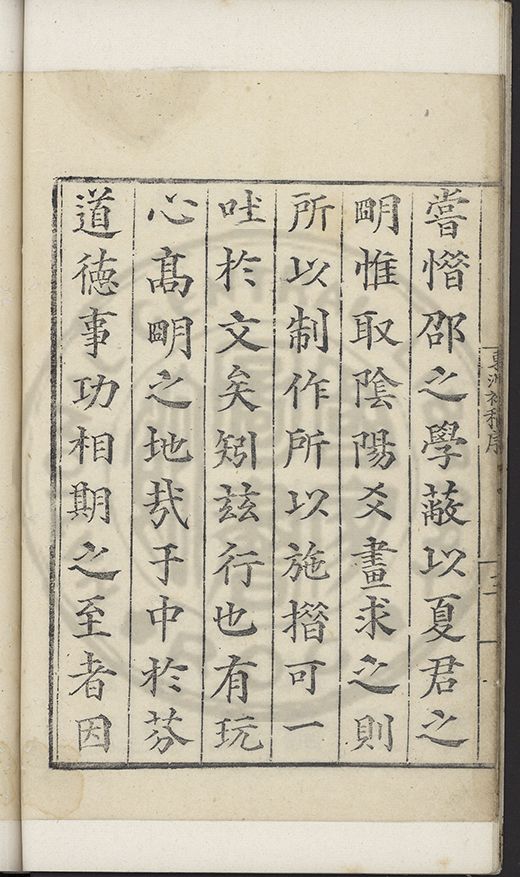 嘗惜邵之學蔽以夏君之
朙惟取陰陽爻畫求之則
所以制作所以施措可一
吐於文矣矧茲行也有玩
心髙朙之地㢤于中於芬
道德事功相期之至者因
東洲初稿序
三